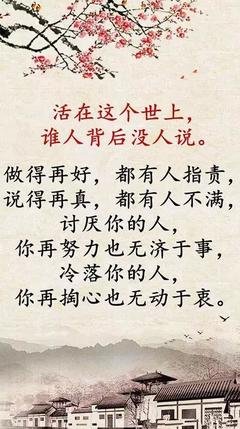 活在这个世上，
谁人背后没人说。
做得再好，都有人指责，
说得再真，都有人不满，
讨厌你的人，
你再努力也无济于事，
冷落你的人，
你再掏心也无动于衷。